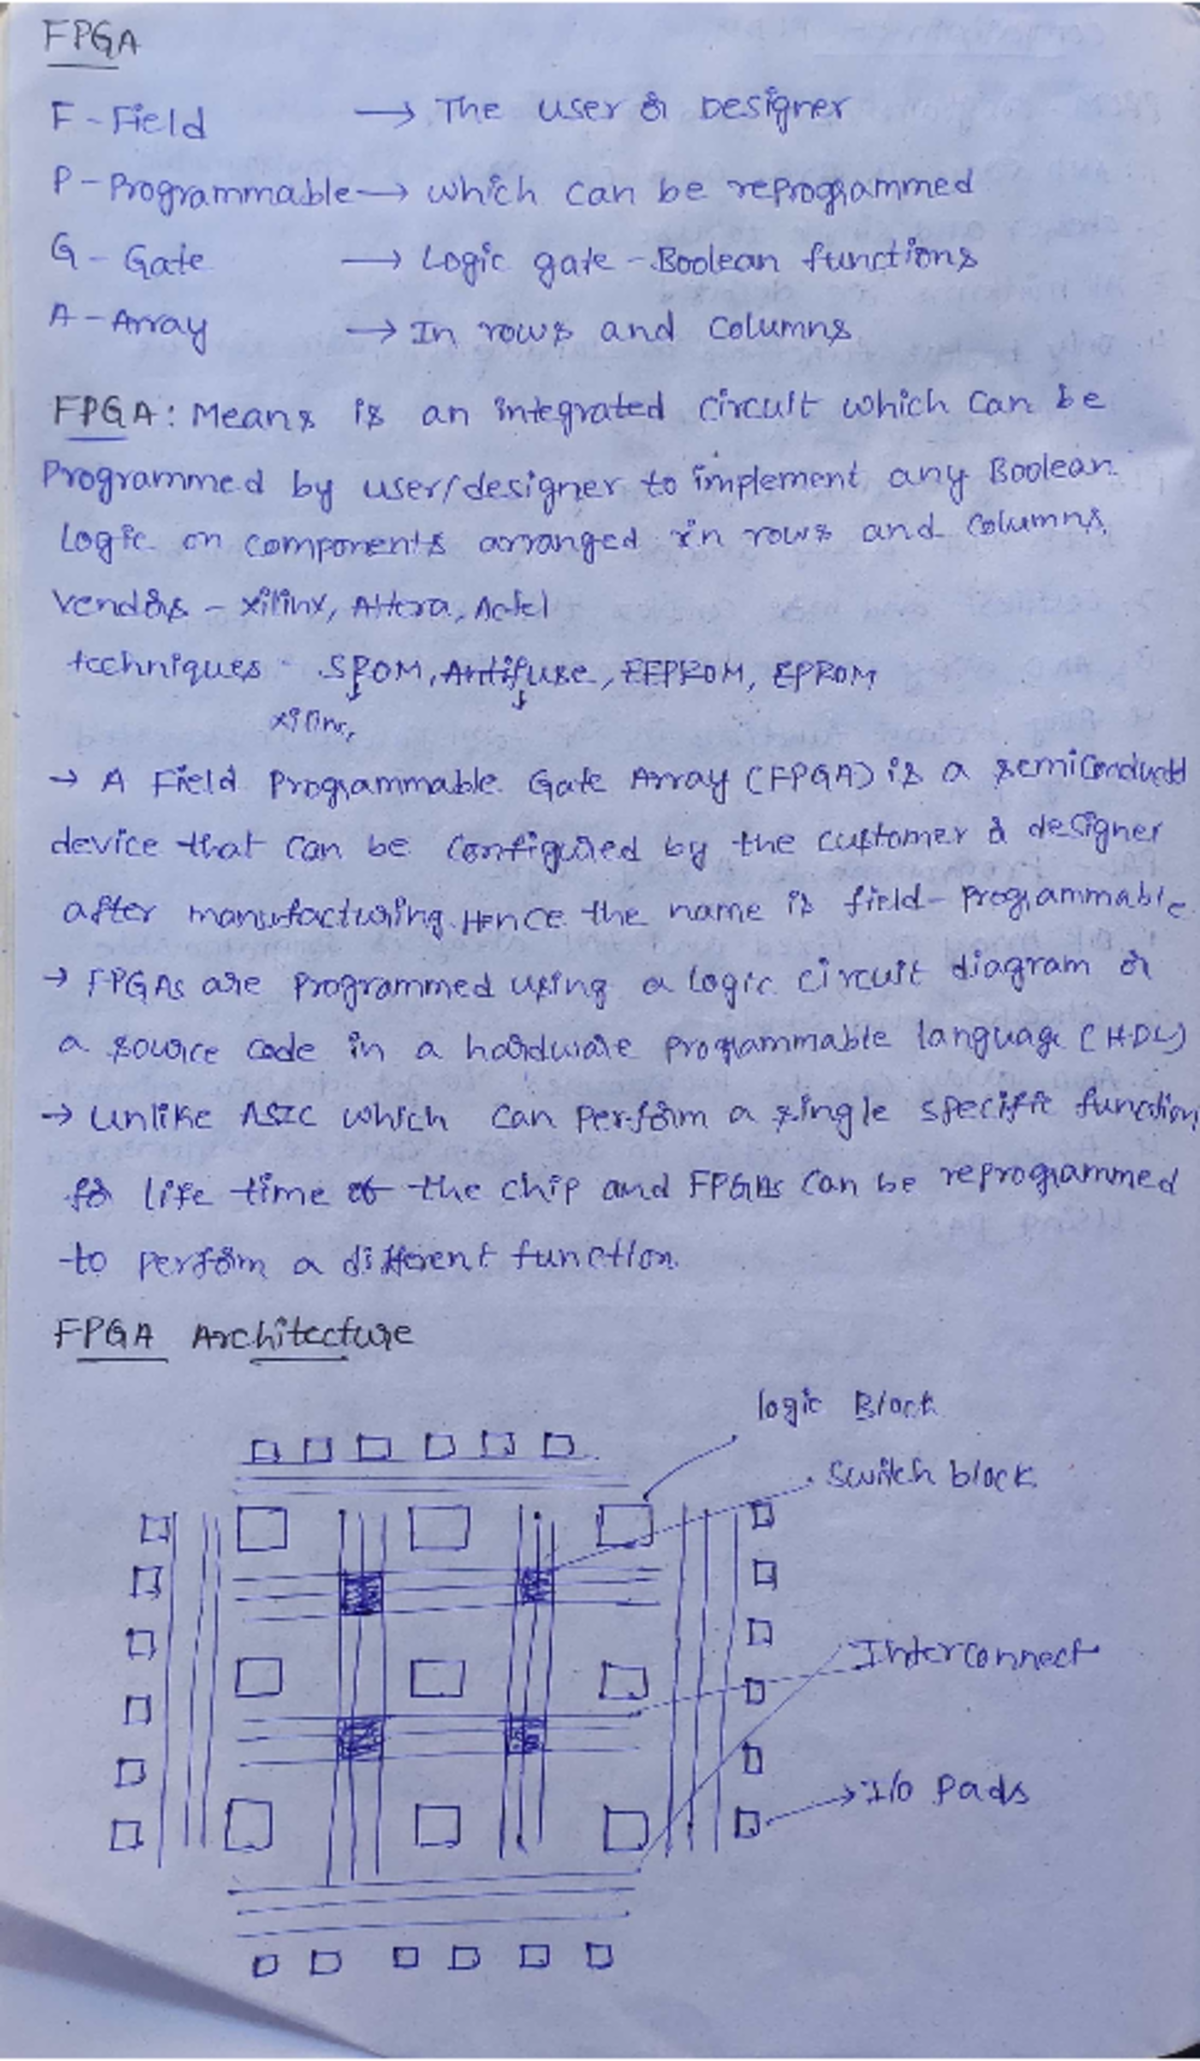 FPGA
F - Field → The user or Designer
P - Programmable → which can be reprogrammed
G - Gate → Logic gate - Boolean functions
A - Array → In rows and columns
FPGA : Means is an integrated circuit which can be
Programmed by user/designer to implement any Boolean
Logic on components arranged in rows and columns.
Vendors - xilinx, Altera, Actel
techniques - SROM, Antifuse, EEPROM, EPROM
xilinx,
→ A Field Programmable Gate Array (FPGA) is a semiconductor
device that can be configured by the customer or designer
after manufacturing. Hence the name is field-programmable
→ FPGAs are programmed using a logic circuit diagram or
a source code in a hardware programmable language (HDL)
→ Unlike ASIC which can perform a single specific function
for life time of the chip and FPGAs can be reprogrammed
to perform a different function.
FPGA Architecture
logic Block
switch block
Interconnect
→ I/O Pads